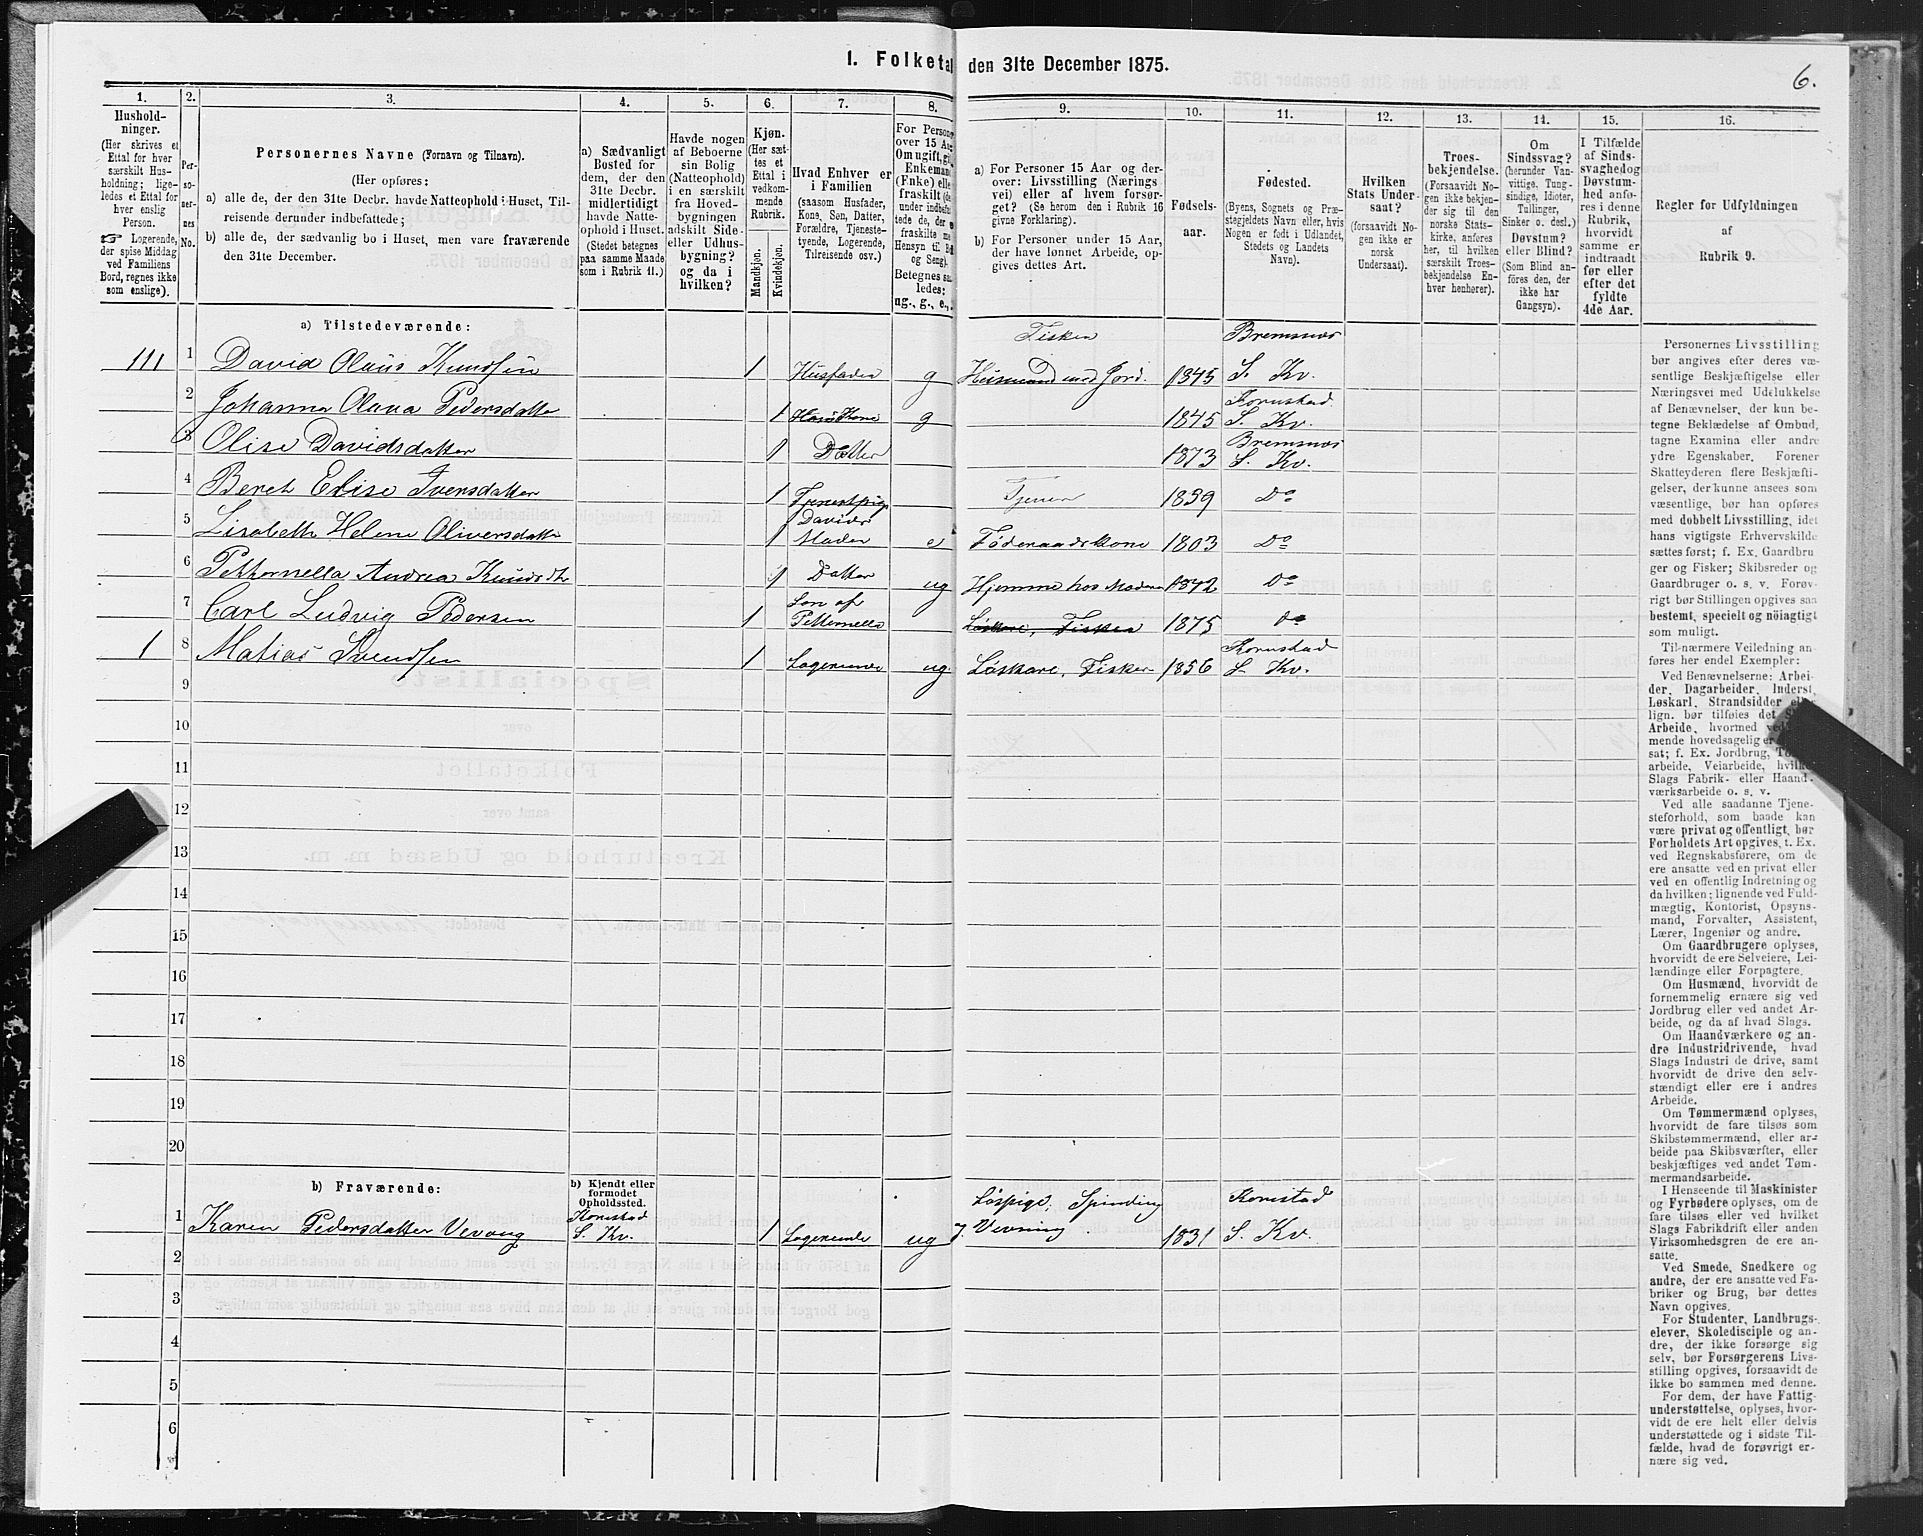 1. Folketal den 31te December 1875.
6.
1. 2. 3. 4. 5. 6. 7. 8. 9. 10. 11. 12. 13. 14. 15. 16.
Hushold-
ninger.
(Her skrives et
Ettal for hver
særskilt Hus-
holdning; lige-
ledes et Ettal for
hver enslig
Person.
☞ Logerende,
der spise Middag
ved Familiens
Bord, regnes ikke
som enslige).
Per-
so-
ner-
nes
No.
Personernes Navne (Fornavn og Tilnavn).
(Her opføres:
a) alle de, der den 31te Decbr. havde Natteophold i Huset, Til-
reisende derunder indbefattede;
b) alle de, der sædvanlig bo i Huset, men vare fraværende
den 31te December.
a) Sædvanligt
Bosted for
dem, der den
31te Decbr.
midlertidigt
havde Natte-
ophold i Huset.
(Stedet betegnes
paa samme Maade
som i Rubrik 11.)
Havde nogen
af Beboerne
sin Bolig
(Natteophold)
i en særskilt
fra Hoved-
bygningen
adskilt Side-
eller Udhus-
bygning?
og da i
hvilken?
Kjøn.
(Her sæt-
tes et
Ettal i
vedkom-
mende
Rubrik.
Mandkjøn.
Kvindekjøn.
Hvad Enhver er
i Familien
(saasom Husfader,
Kone, Søn, Datter,
Forældre, Tjeneste-
tyende, Logerende,
Tilreisende osv.)
For Persone
over 15 Aa
Om ugift, gi
Enkeman
(Enke) elle
fraskilt (de
under indbefat
tede de, der e
fraskilte me
Hensyn til B
og Seng).
Betegnes saa
ledes:
ug., g., e.,
a) For Personer 15 Aar og der-
over: Livsstilling (Nærings
vei) eller af hvem forsør-
get? (Se herom den i Rubrik 16
givne Forklaring).
b) For Personer under 15 Aar,
der have lønnet Arbeide, op-
gives dettes Art.
Fødsels-
aar.
Fødested.
(Byens, Sognets og Præ-
stegjeldets Navn eller, hvis
Nogen er født i Udlandet,
Stedets og Landets
Navn).
Hvilken
Stats Under-
saat?
(forsaavidt No-
gen ikke er
norsk
Undersaat).
Troes-
bekjendelse.
(Forsaavidt No-
gen ikke bekjen-
der sig til den
norske Stats-
kirke, anføres
her, til hvilken
særskilt Troes-
bekjendelse En-
hver henhører).
Om
Sindssvag?
(herunder Van-
vittige, Tung-
sindige, Idioter,
Tullinger,
Sinker o. desl.)
Døvstum?
eller Blind?
(Som Blind an-
føres den, der
ikke har
Gangsyn).
I Tilfælde
af Sinds-
svaghedog
Døvstum-
hed anfø-
res i denne
Rubrik,
hvorvidt
samme er
indtraadt
før eller
efter det
fyldte
4de Aar.
Regler for Udfyldningen
af
Rubrik 9.
a) Tilstedeværende:
Fisker Bremsnes
111 1 David Olaus Knudsen 1 Husfader g Husmand med Jord. 1845 S. Kv.
Kornstad
2 Johanna Olava Pedersdatter 1 Hans Kone g 1845 S. Kv.
Bremsnes
3 Olise Davidsdatter 1 Datter 1873 S. Kv.
4 Beret Elise Iversdatter 1 Tjenestpige Tjener 1839 Do
Davids
5 Lisabeth Helene Oliversdatter 1 Moder e Føderaadskone 1803 Do
6 Petternella Andrea Knudsdtr 1 Datter ug Hjemme hos Moderen 1842 Do
Søn af
7 Carl Ludvig Pedersen 1 Petternella Løskare, Fisker 1875 do
Kornstad
1 8 Matias Svendsen 1 Logerende ug Løskare, Fisker 1856 S. Kv.
9
10
11
12
13
14
15
16
17
18
19
20
b) Fraværende:
b) Kjendt eller
formodet
Opholdssted.
Kornstad Løspige, Spinding Kornstad
1 Karen Pedersdatter Vevang S. Kv. 1 Logerende ug g. Vevning 1831 S. Kv.
2
3
4
5
6
Personernes Livsstilling
bør angives efter deres væ-
sentlige Beskjæftigelse eller
Næringsvei med Udelukkelse
af Benævnelser, der kun be-
tegne Beklædelse af Ombud,
tagne Examina eller andre
ydre Egenskaber. Forener
Skatteyderen flere Beskjæfti-
gelser, der kunne ansees som
væsentlige, bør han opføres
med dobbelt Livsstilling, idet
hans vigtigste Erhvervskilde
sættes først; f. Ex. Gaardbru
ger og Fisker; Skibsreder og
Gaardbruger o. s. v. Forøv-
rigt bør Stillingen opgives saa
bestemt, specielt og nöiagtigt
som muligt.
Til-nærmere Veiledning an-
føres her endel Exempler:
Ved Benævnelserne: Arbei-
der, Dagarbeider, Inderst,
Løskarl, Strandsidder eller
lign. bør tilføies det S
Arbeide, hvormed ved
mende hovedsagelig er
sat; f. Ex. Jordbrug, T
arbeide, Veiarbeide, hvilke
Slags Fabrik- eller Haand-
værksarbeide o. s. v.
Ved alle saadanne Tjene-
steforhold, som baade kan
være privat og offentligt, bør
Forholdets Art opgives, t. Ex.
ved Regnskabsførere, om de
ere ansatte ved en privat eller
ved en offentlig Indretning og
da hvilken; lignende ved Fuld-
mægtig, Kontorist, Opsyns-
mand, Forvalter, Assistent,
Lærer, Ingeniør og andre.
Om Gaardbrugere oplyses,
hvorvidt de ere Selveiere, Lei-
lændinge eller Forpagtere.
Om Husmænd, hvorvidt de
fornemmelig ernære sig ved
Jordbrug eller ved andet Ar-
beide, og da af hvad Slags.
Om Haandværkere og an-
dre Industridrivende, hvad
Slags Industri de drive, samt
hvorvidt de drive den selv-
stændigt eller ere i andres
Arbeide.
Om Tømmermænd oplyses,
hvorvidt de fare tilsøs som
Skibstømmermænd, eller ar-
beide paa Skibsværfter, eller
beskjæftiges ved andet Tøm-
mermandsarbeide.
I Henseende til Maskinister
og Fyrbødere oplyses, om de
fare tilsøs eller ved hvilket
Slags Fabrikdrift eller anden
Virksomhedsgren de ere an-
satte.
Ved Smede, Snedkere og
andre, der ere ansatte ved Fa-
briker og Brug, bør dettes
Navn opgives.
For Studenter, Landbrugs-
elever, Skoledisciple og an-
dre, der ikke forsørge sig
selv, bør Forsørgerens Livs-
stilling opgives, forsaavidt de
ikke bo sammen med denne.
For dem, der have Fattig-
understøttelse, oplyses, hvor-
vidt de ere helt eller delvis
understøttede og i sidste Til-
fælde, hvad de forøvrigt er-
nære sig ved.